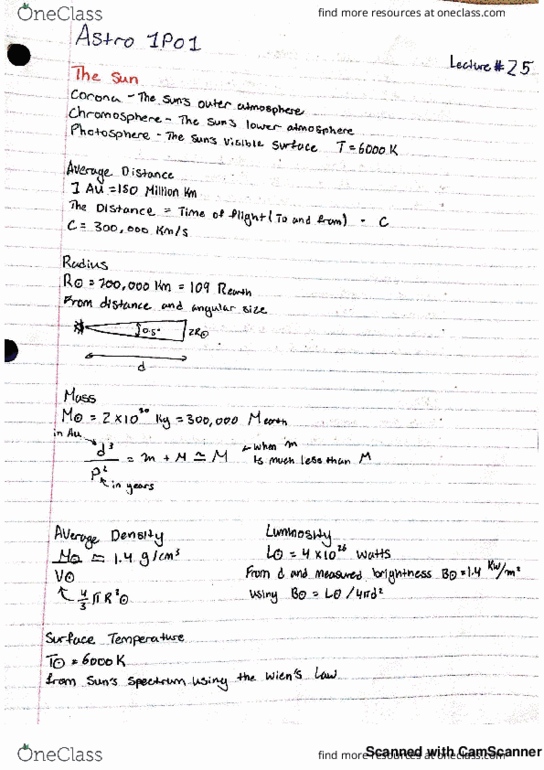 OneClass
find more resources at oneclass.com
Astro 1P01
Lecture # 25
The Sun
Corona - The Sun's outer atmosphere
Chromosphere - The Sun's lower atmosphere
Photosphere - The Sun's visible surface T = 6000 K
Average Distance
1 Au = 150 Million Km
The Distance = Time of flight (To and from) · C
C = 300,000 Km/s
Radius
R⊙ = 700,000 Km = 109 Rearth
From distance and angular size
0.5° 2R⊙
d
Mass
M⊙ = 2 × 10³⁰ Kg = 300,000 Mearth
in Au
d³/P² = m + M ≃ M ← when m
is much less than M
in years
Average Density
M⊙/V⊙ = 1.4 g/cm³
4/3 π R³⊙
Luminosity
L⊙ = 4 × 10²⁶ Watts
From d and measured brightness B⊙ = 1.4 Kw/m²
using B⊙ = L⊙ / 4πd²
Surface Temperature
T⊙ = 6000 K
from Sun's spectrum using the Wien's Law
OneClass
find more resources at oneclass.com
Scanned with CamScanner